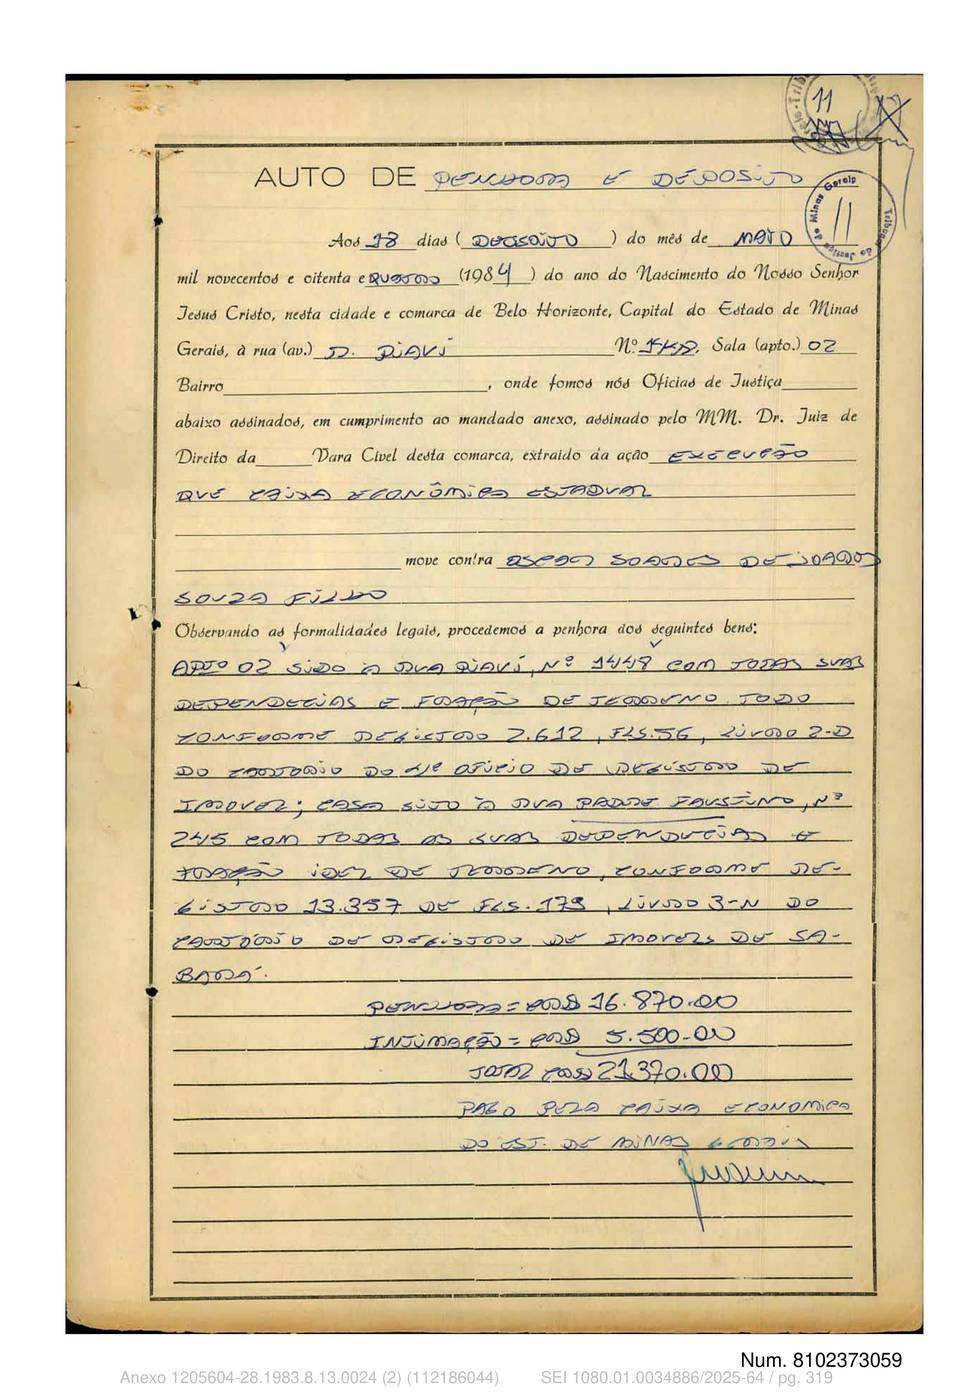 11
11
Tribunal de Justiça de Minas Gerais
AUTO DE PENHORA E DEPOSITO
Aos 18 dias ( DEZOITO ) do mês de MAIO
mil novecentos e oitenta e QUATRO (1984 ) do ano do Nascimento do Nosso Senhor
Jesus Cristo, nesta cidade e comarca de Belo Horizonte, Capital do Estado de Minas
Gerais, à rua (av.) R. PIAUÍ Nº Sala (apto.) 02
Bairro , onde fomos nós Oficias de Justiça
abaixo assinados, em cumprimento ao mandado anexo, assinado pelo MM. Dr. Juiz de
Direito da Vara Civel desta comarca, extraido da ação EXECUÇÃO
QUE CAIXA ECONÔMICA ESTADUAL
move contra SOARES DE
SOUZA FILHO
Observando as formalidades legais, procedemos a penhora dos seguintes bens:
APTº 02 SITO À RUA PIAUÍ, Nº 1448 COM TODAS SUAS
DEPENDECIAS E FRAÇÃO DE TERRENO TODO
CONFORME REGISTRO 2.612, FLS.56, LIVRO 2-D
DO CARTORIO DO 4º OFICIO DE REGISTRO DE
IMOVEL; CASA SITO À RUA PADRE FAUSTINO, Nº
245 COM TODAS AS SUAS DEPENDECIAS E
FRAÇÃO IDEL DE TERRENO, CONFORME RE-
GISTRO 13.357 DE FLS. 173, LIVRO 3-N DO
CARTÓRIO DE REGISTRO DE IMOVEIS DE SA-
BARÁ.
PENHORA = CR$ 16.870.00
INTIMAÇÃO = CR$ 5.500.00
TOTAL CR$ 21.370.00
PAGO PELA CAIXA ECONOMICA
DO EST. DE MINAS GERAIS
Num. 8102373059
Anexo 1205604-28.1983.8.13.0024 (2) (112186044) SEI 1080.01.0034886/2025-64 / pg. 319